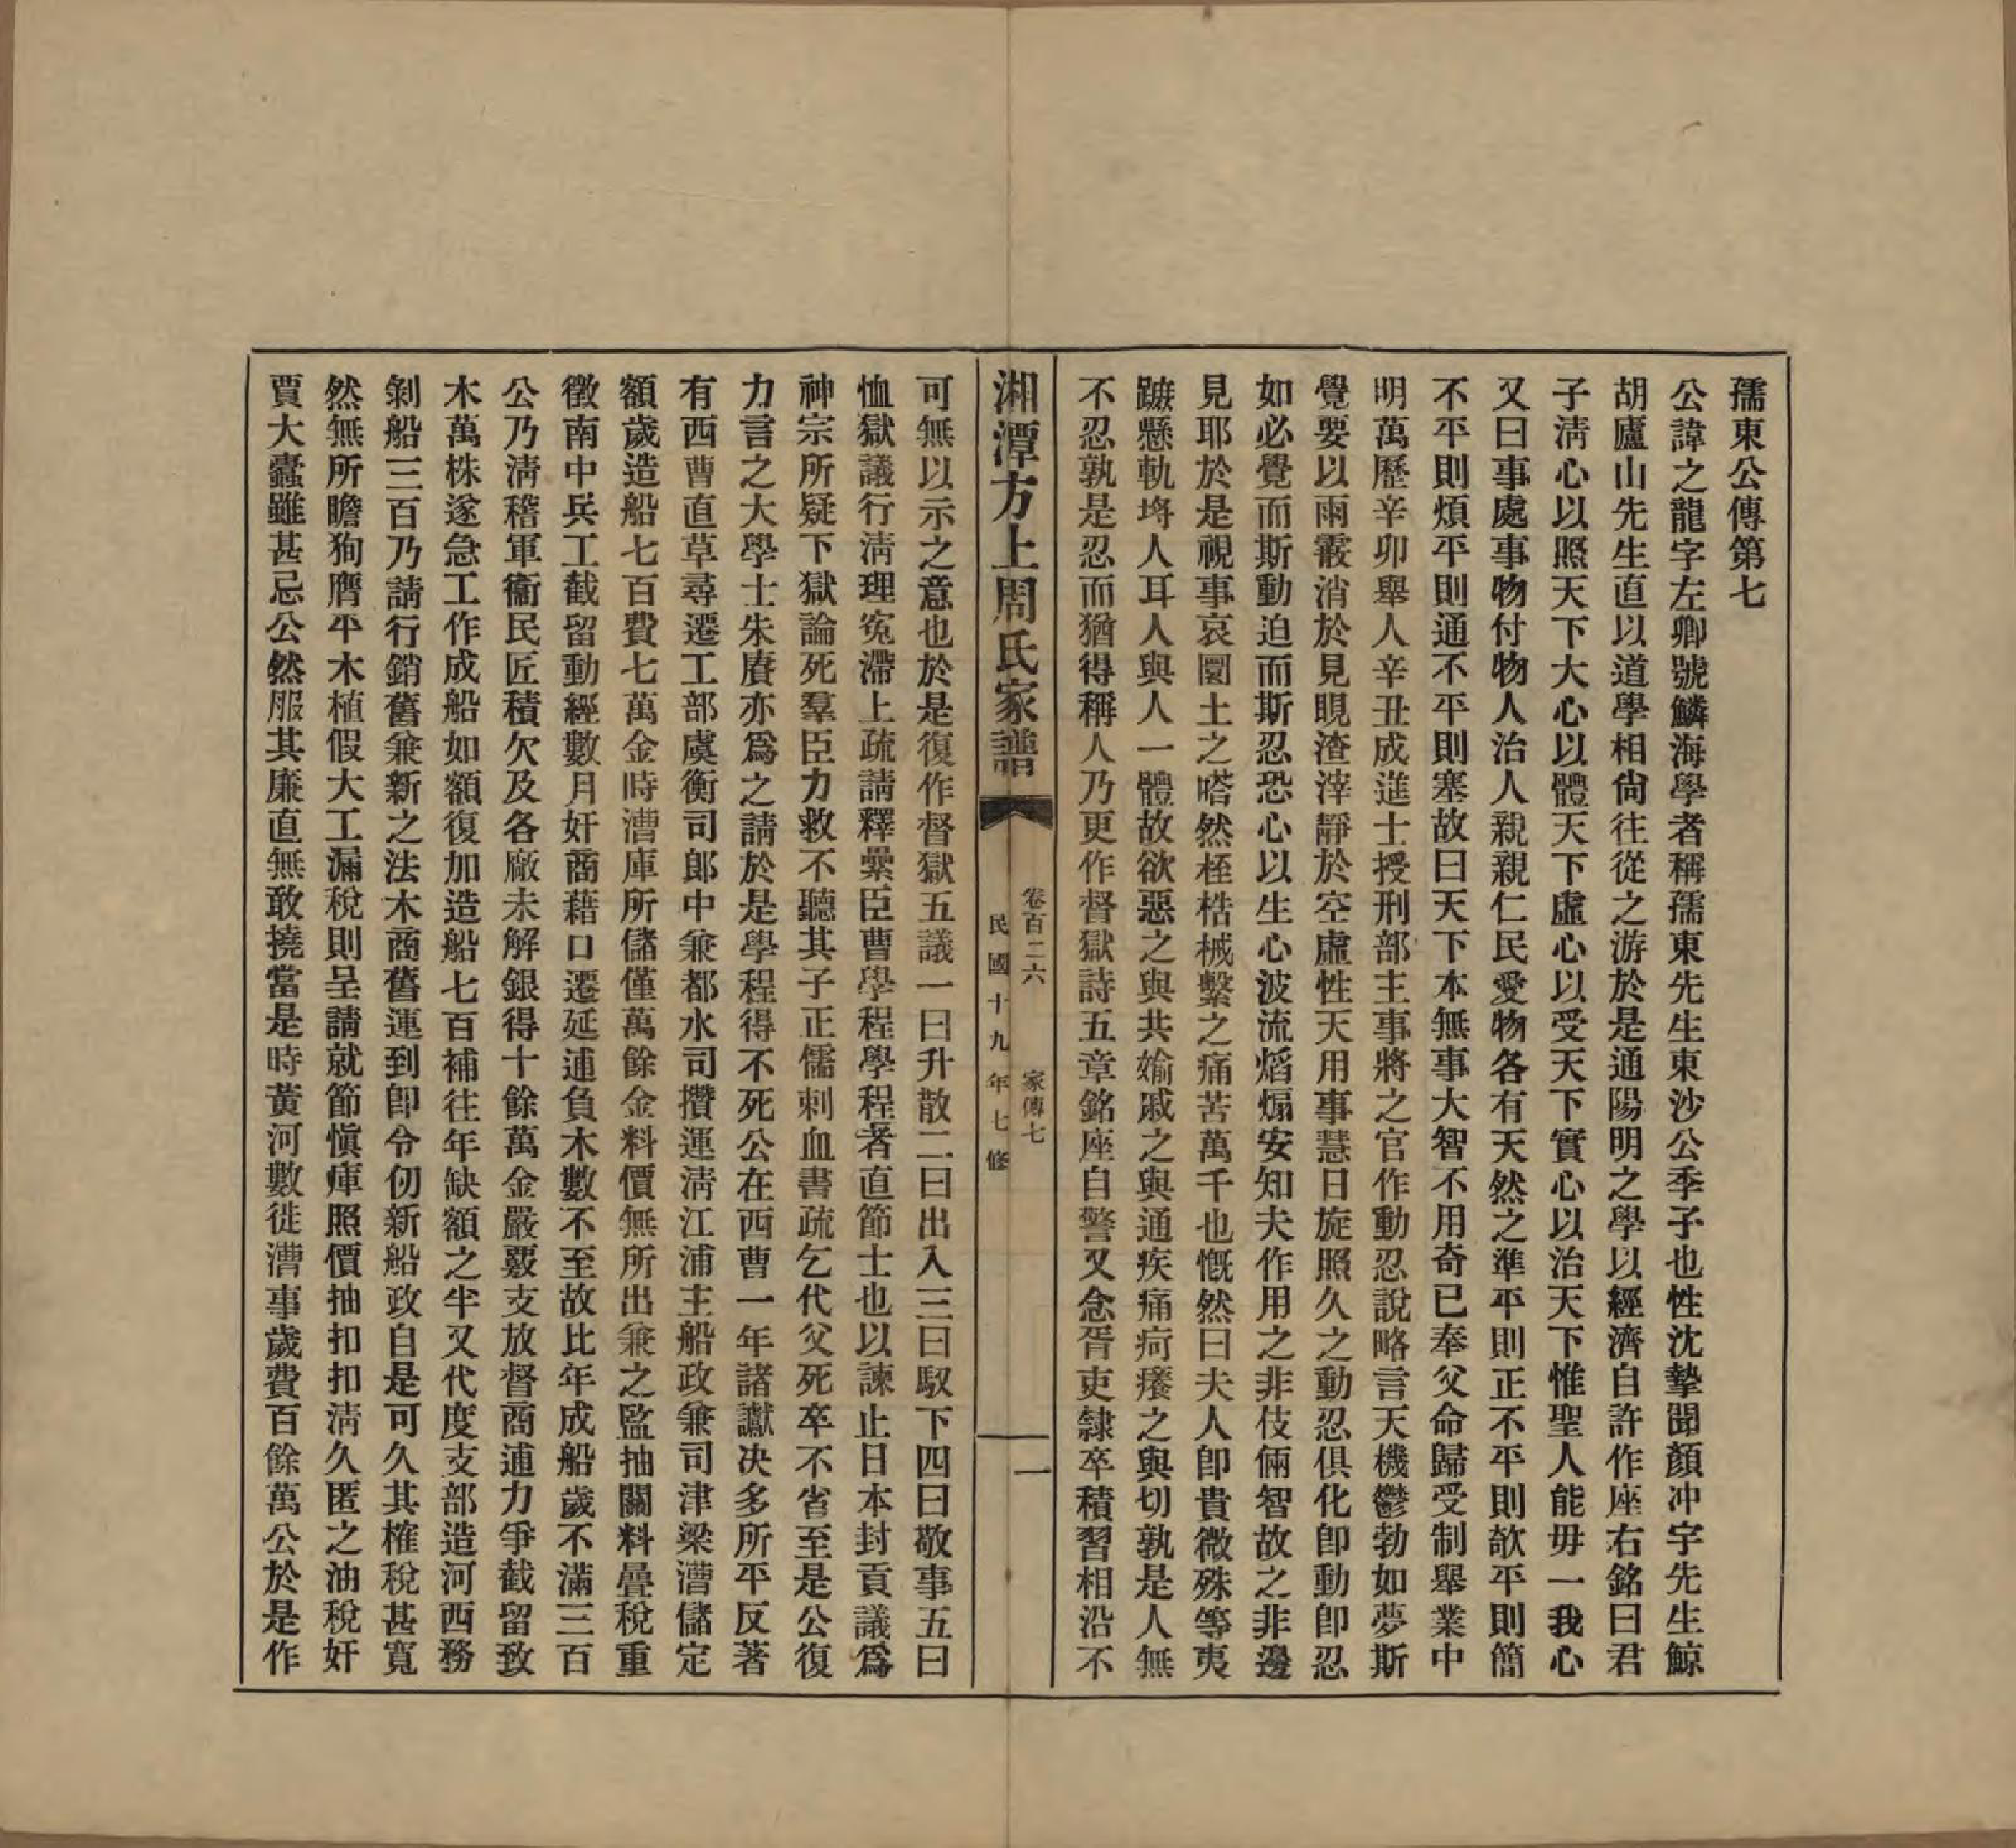 孺東公傳第七
公諱之龍字左卿號鱗海學者稱孺東先生東沙公季子也性沈摯聞顏冲宇先生鯨
胡廬山先生直以道學相尙往從之游於是通陽明之學以經濟自許作座右銘曰君
子淸心以照天下大心以體天下虛心以受天下實心以治天下惟聖人能毋一我心
又曰事處事物付物人治人親親仁民愛物各有天然之準平則正不平則欹平則簡
不平則煩平則通不平則塞故曰天下本無事大智不用奇已奉父命歸受制舉業中
明萬歷辛卯舉人辛丑成進士授刑部主事將之官作動忍說略言天機鬱勃如夢斯
覺要以雨霰消於見晛渣滓靜於空虛性天用事慧日旋照久之動忍俱化卽動卽忍
如必覺而斯動迫而斯忍恐心以生心波流熖煽安知夫作用之非伎倆智故之非邊
見耶於是視事哀圜土之嗒然桎梏械繫之痛苦萬千也慨然曰夫人卽貴微殊等夷
蹠懸軌埓人耳人與人一體故欲惡之與共媮戚之與通疾痛疴癢之與切孰是人無
不忍孰是忍而猶得稱人乃更作督獄詩五章銘座自警又念胥吏隸卒積習相沿不
湘潭方上周氏家譜
卷百二六 家傳七
一
民國十九年七修
可無以示之意也於是復作督獄五議一曰升散二曰出入三曰馭下四曰敬事五曰
恤獄議行淸理寃滯上疏請釋纍臣曹學程學程者直節士也以諫止日本封貢議爲
神宗所疑下獄論死羣臣力救不聽其子正儒刺血書疏乞代父死卒不省至是公復
力言之大學士朱賡亦爲之請於是學程得不死公在西曹一年諸讞决多所平反著
有西曹直草尋遷工部虞衡司郎中兼都水司攢運淸江浦主船政兼司津梁漕儲定
額歲造船七百費七萬金時漕庫所儲僅萬餘金料價無所出兼之監抽關料疊稅重
徵南中兵工截留動經數月奸商藉口遷延逋負木數不至故比年成船歲不滿三百
公乃淸稽軍衞民匠積欠及各廠未解銀得十餘萬金嚴覈支放督商逋力爭截留致
木萬株遂急工作成船如額復加造船七百補往年缺額之半又代度支部造河西務
剝船三百乃請行銷舊兼新之法木商舊運到卽令仞新船政自是可久其榷稅甚寬
然無所瞻狥膺平木植假大工漏稅則呈請就節愼庫照價抽扣扣淸久匿之油稅奸
賈大蠧雖甚忌公然服其廉直無敢撓當是時黃河數徙漕事歲費百餘萬公於是作